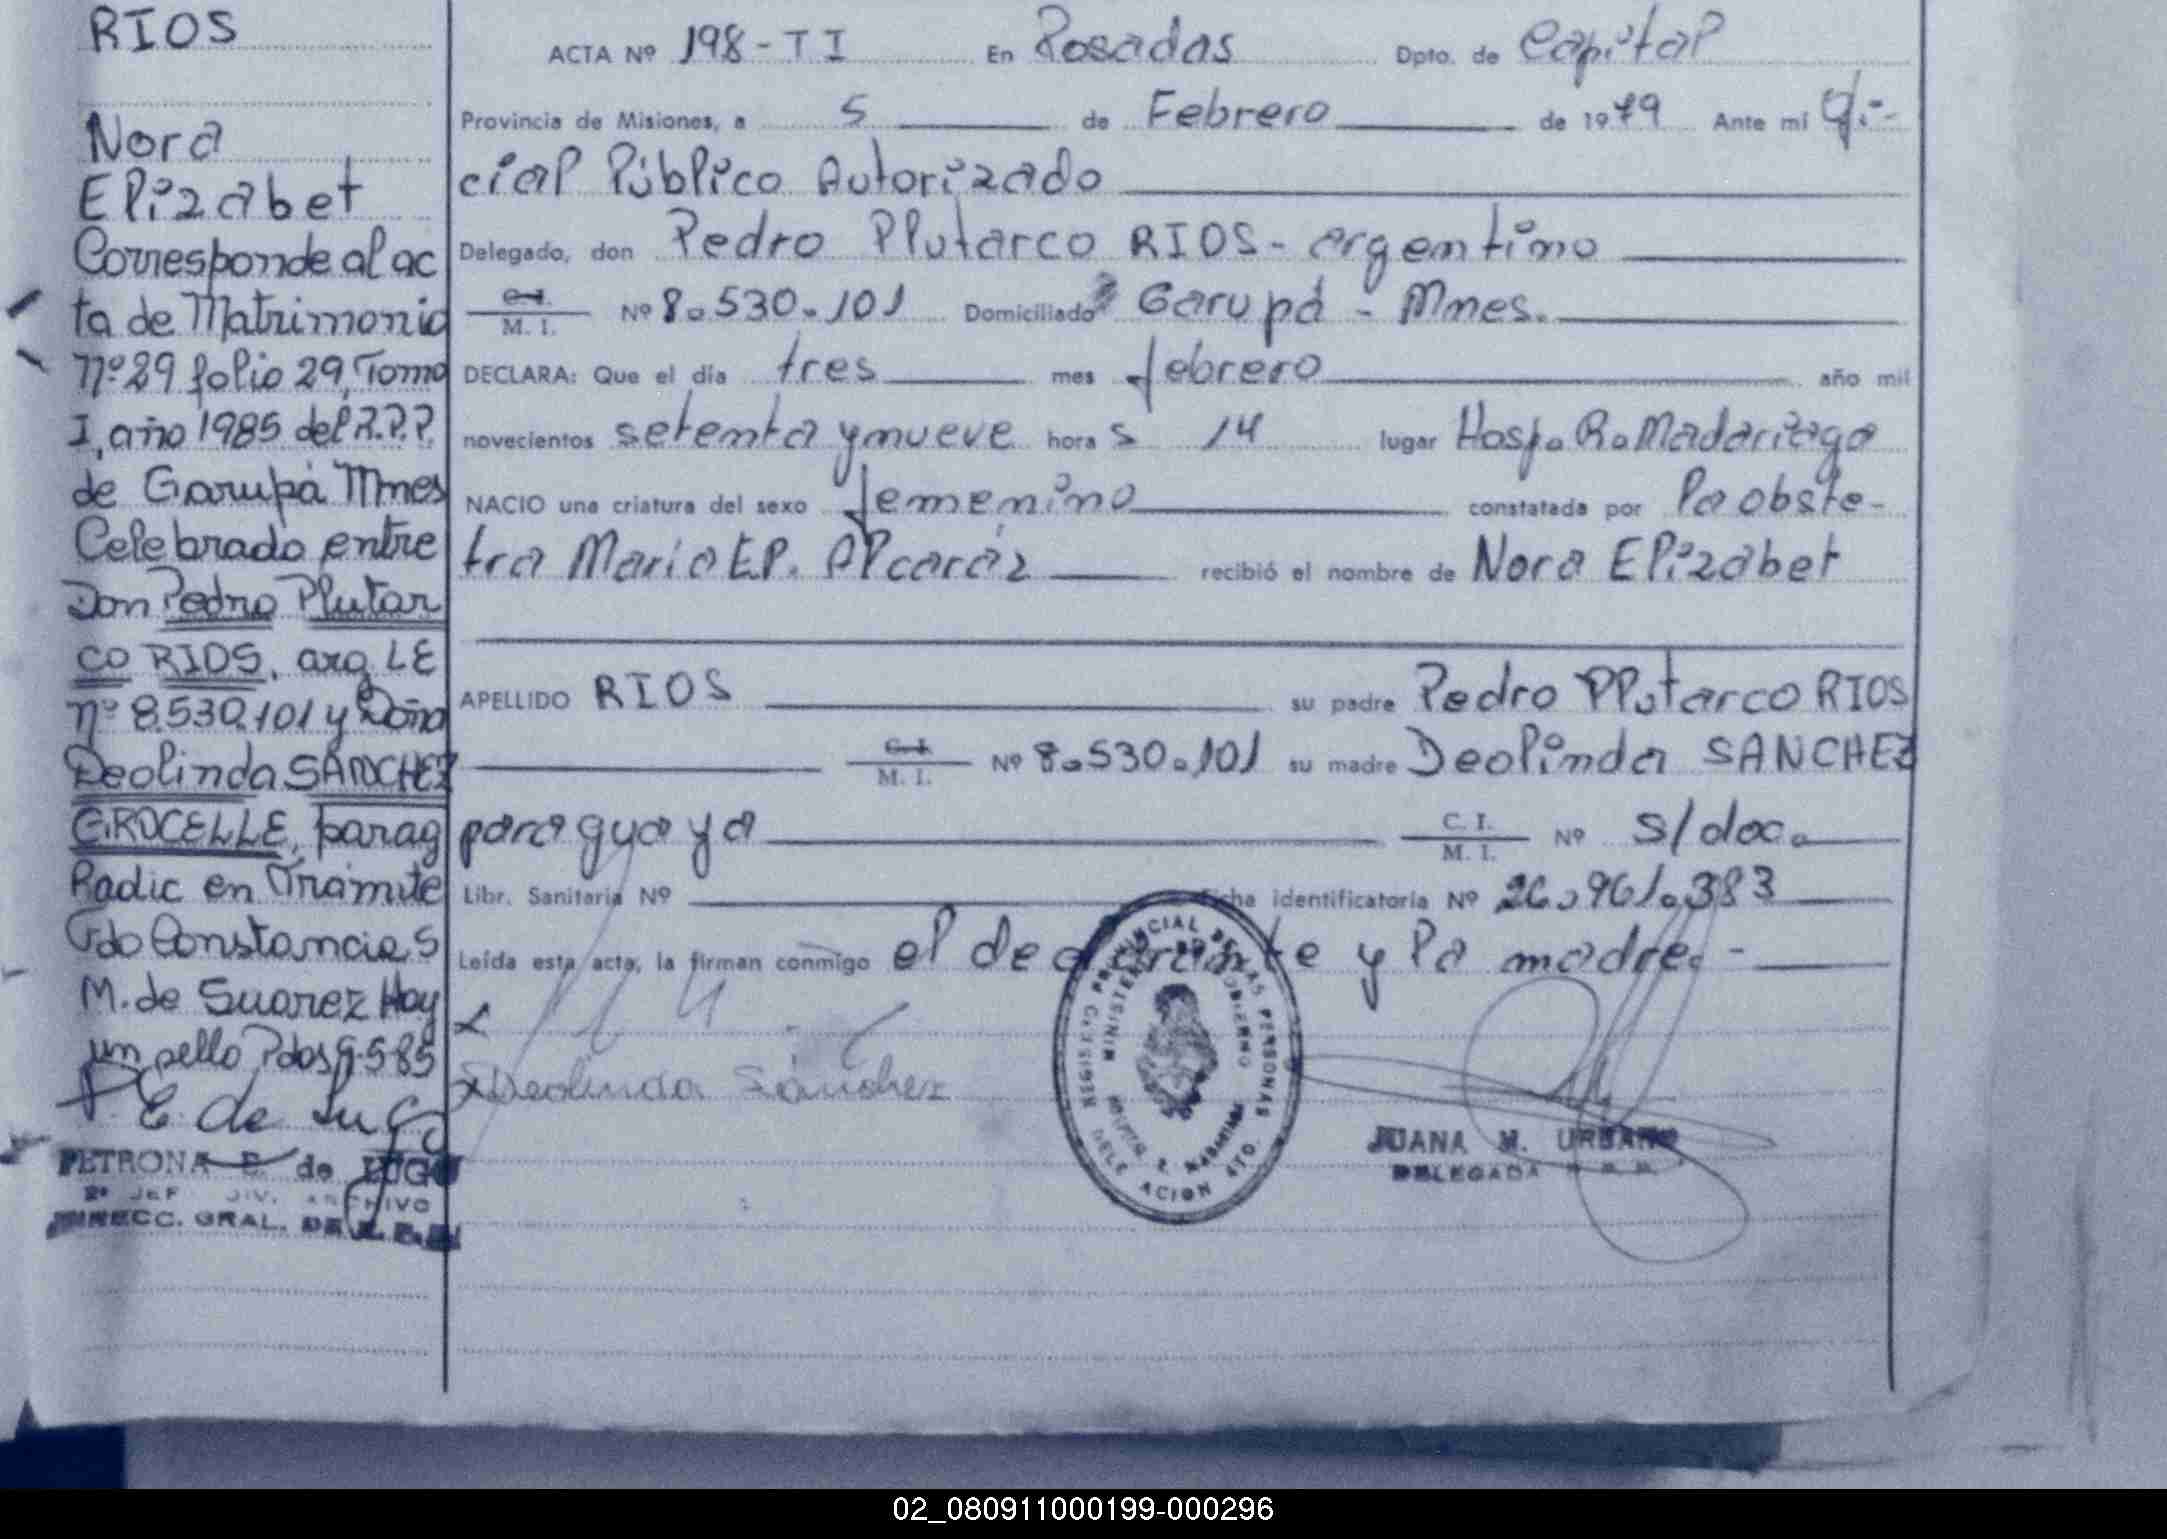 RIOS
Nora
Elizabet
Corresponde al ac
ta de Matrimonio
nº 29 folio 29, Tomo
I, año 1985 del R.P.P.
de Garupá Mnes
Celebrado entre
Don Pedro Plutar
co RIOS, arg LE
nº 8.530.101 y Doña
Deolinda SANCHEZ
GROCELLE, parag
Radic en Trámite
Fdo Constancia S
M. de Suarez Hay
un sello Pdas 9-5-85
P. E. de Lugo
PETRONA E. de LUGO
2º JEF DIV. ARCHIVO
DIRECC. GRAL. DE R. P. P.
ACTA Nº 198-TI En Posadas Dpto. de Capital
Provincia de Misiones, a 5 de Febrero de 1979 Ante mí Ofi-
cial Público Autorizado
Delegado, don Pedro Plutarco RIOS - argentino
C.I. M. I. Nº 8.530.101 Domiciliado Garupá - Mnes.
DECLARA: Que el día tres mes febrero año mil
novecientos setenta y nueve hora s 14 lugar Hosp. R. Madariaga
NACIO una criatura del sexo femenino constatada por la obste-
tra Maria El. Alcaráz recibió el nombre de Nora Elizabet
APELLIDO RIOS su padre Pedro Plutarco RIOS
C.I. M. I. Nº 8.530.101 su madre Deolinda SANCHEZ
paraguaya C. I. M. I. Nº s/doc.
Libr. Sanitaria Nº Ficha identificatoria Nº 26.961.383
Leída esta acta, la firman conmigo el declarante y la madre. -
x
x Deolinda Sánchez
REGISTRO PROVINCIAL DE LAS PERSONAS
MINISTERIO GOBIERNO
DELEGACION 4TO.
JUANA M. URBANO
DELEGADA R. P. P.
02_080911000199-000296